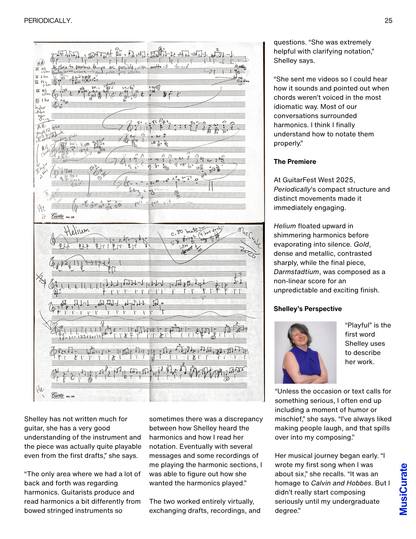 PERIODICALLY.
25
Helium
Shelley has not written much for
guitar, she has a very good
understanding of the instrument and
the piece was actually quite playable
even from the first drafts,” she says.
“The only area where we had a lot of
back and forth was regarding
harmonics. Guitarists produce and
read harmonics a bit differently from
bowed stringed instruments so
sometimes there was a discrepancy
between how Shelley heard the
harmonics and how I read her
notation. Eventually with several
messages and some recordings of
me playing the harmonic sections, I
was able to figure out how she
wanted the harmonics played.”
The two worked entirely virtually,
exchanging drafts, recordings, and
questions. “She was extremely
helpful with clarifying notation,”
Shelley says.
“She sent me videos so I could hear
how it sounds and pointed out when
chords weren’t voiced in the most
idiomatic way. Most of our
conversations surrounded
harmonics. I think I finally
understand how to notate them
properly.”
The Premiere
At GuitarFest West 2025,
Periodically’s compact structure and
distinct movements made it
immediately engaging.
Helium floated upward in
shimmering harmonics before
evaporating into silence. Gold,
dense and metallic, contrasted
sharply, while the final piece,
Darmstadtium, was composed as a
non-linear score for an
unpredictable and exciting finish.
Shelley’s Perspective
“Playful” is the
first word
Shelley uses
to describe
her work.
“Unless the occasion or text calls for
something serious, I often end up
including a moment of humor or
mischief,” she says. “I’ve always liked
making people laugh, and that spills
over into my composing.”
Her musical journey began early. “I
wrote my first song when I was
about six,” she recalls. “It was an
homage to Calvin and Hobbes. But I
didn’t really start composing
seriously until my undergraduate
degree.”
MusiCurate